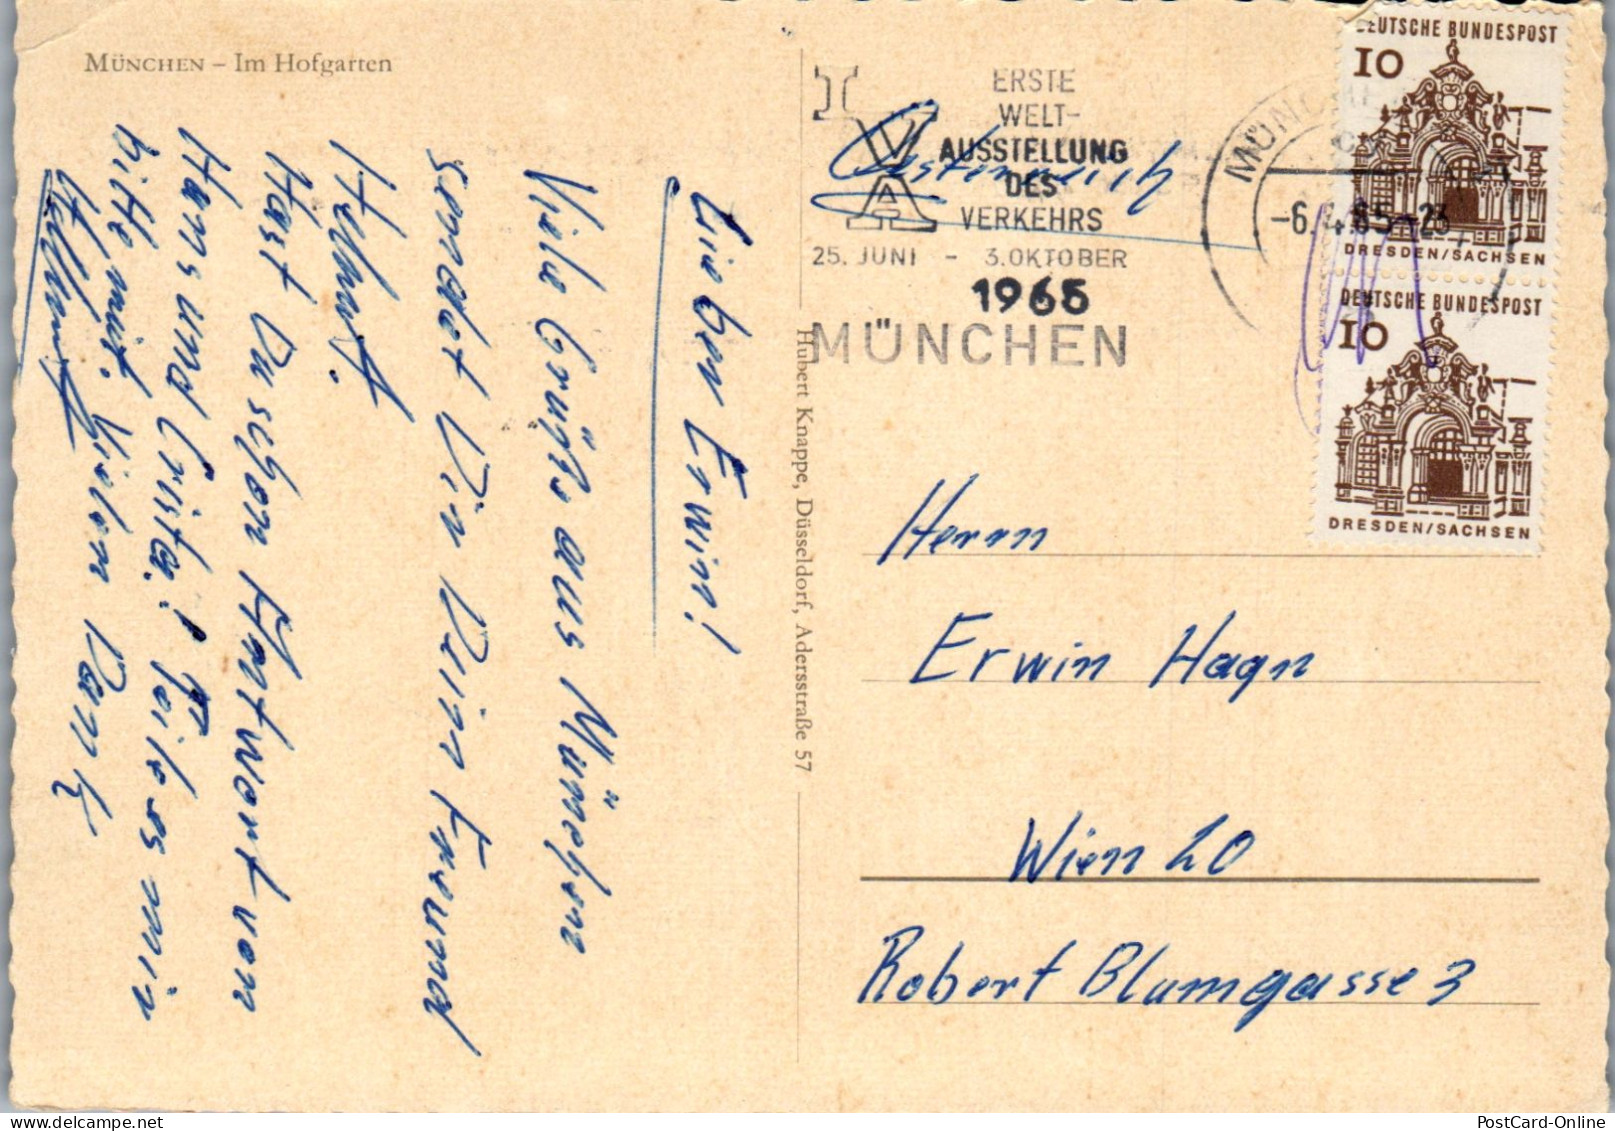 MÜNCHEN – Im Hofgarten
Lieber Erwin!
Viele Grüße aus München
sendet Dir Dein Freund
Helmut.
Hast Du schon Antwort von
Hans und Crista! Teile es mir
bitte mit. Vielen Dank
Helmut
Hubert Knappe, Düsseldorf, Adersstraße 57
IVA
ERSTE
WELT-
AUSSTELLUNG
DES
VERKEHRS
25. JUNI - 3. OKTOBER
1965
MÜNCHEN
Oesterreich
MÜNCHEN
-6. 4. 65 -23
DEUTSCHE BUNDESPOST
10
DRESDEN/SACHSEN
DEUTSCHE BUNDESPOST
10
DRESDEN/SACHSEN
Herrn
Erwin Hagn
Wien 20
Robert Blumgasse 3
PostCard-Online